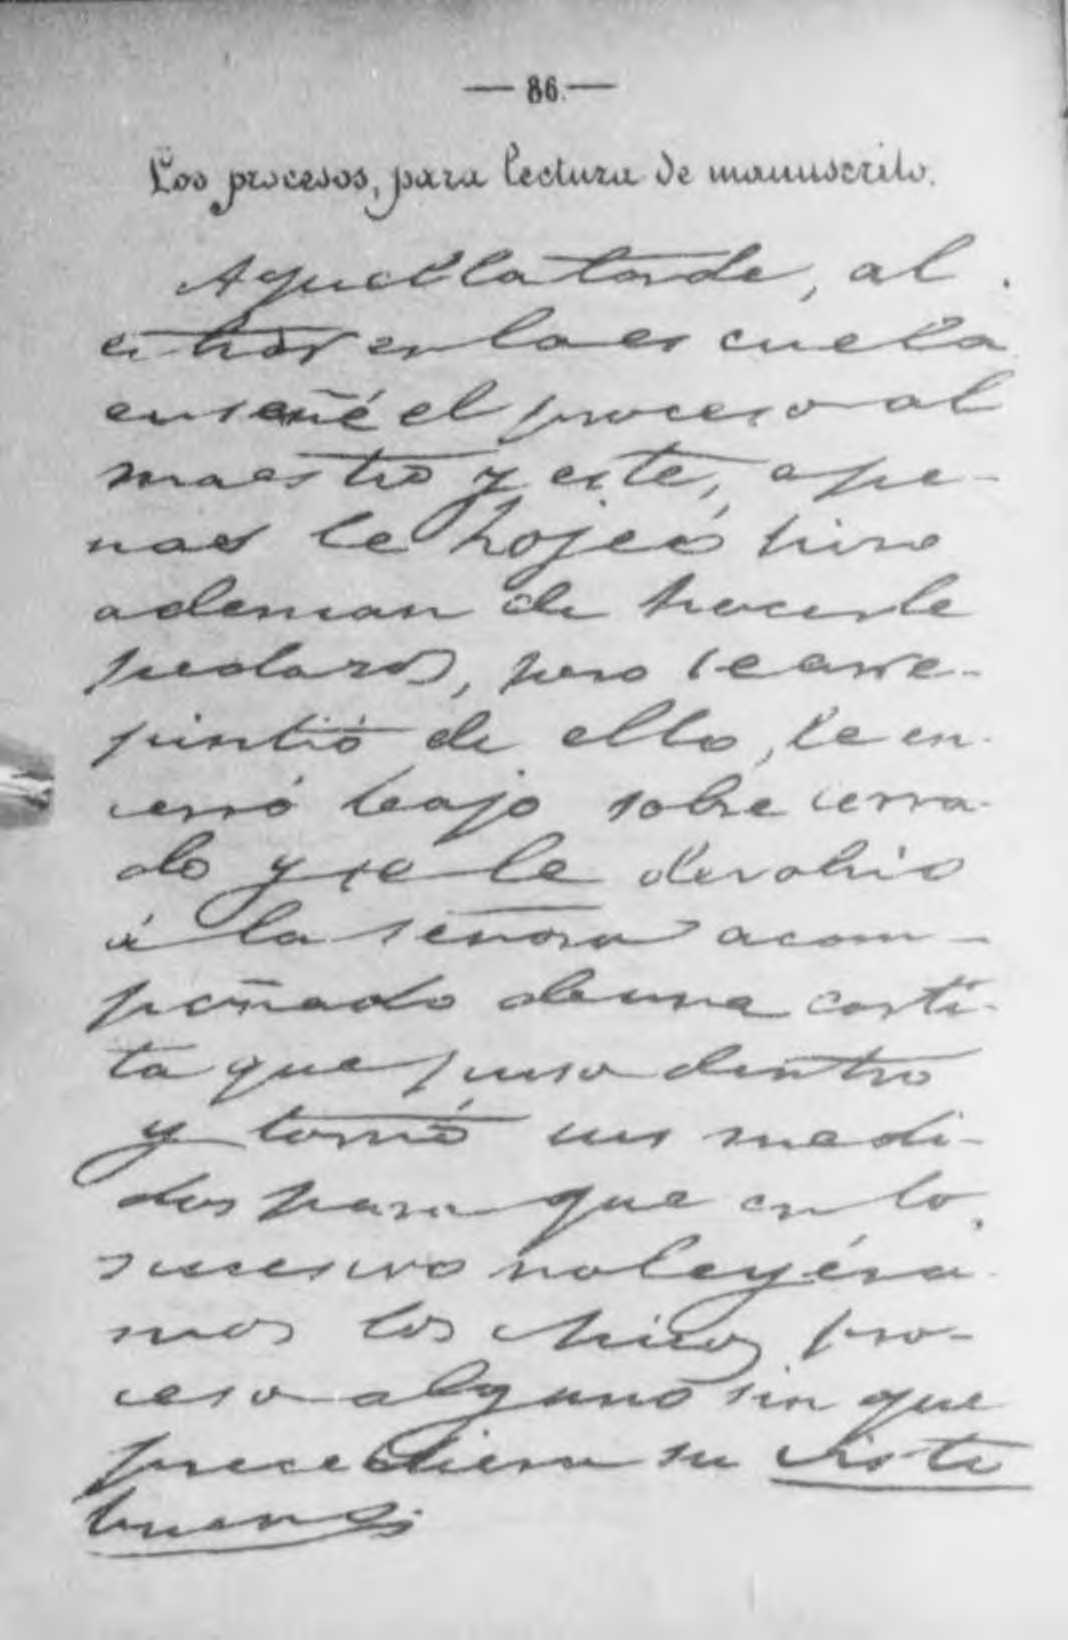 — 86. —
Los procesos, para lectura de manuscrito.
Aquella tarde, al
entrar en la escuela
enseñé el proceso al
maestro y este, ape-
nas le hojeó hizo
ademan de hacerle
pedazos, pero se arre-
pintió de ello, le en-
cerró bajo sobre cerra-
do y se le devolvió
á la señora acom-
pañado de una carti-
ta que puso dentro
y tomó sus medi-
das para que en lo
sucesivo no leyéra-
mos los chicos pro-
ceso alguno sin que
precediera su visto
bueno